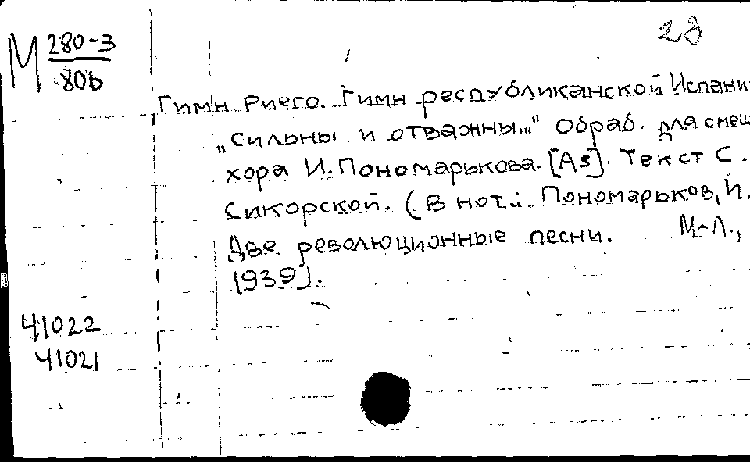 М 280-3
806
23
Гимн Риего. Гимн республиканской Испани
„Сильны и отважны..." Обраб. для смеш
хора И. Пономарькова. [As]. Текст С.
Сикорской. (В нот.: Пономарьков, И.
Две революционные песни. М-Л.,
1939).
41022
41021